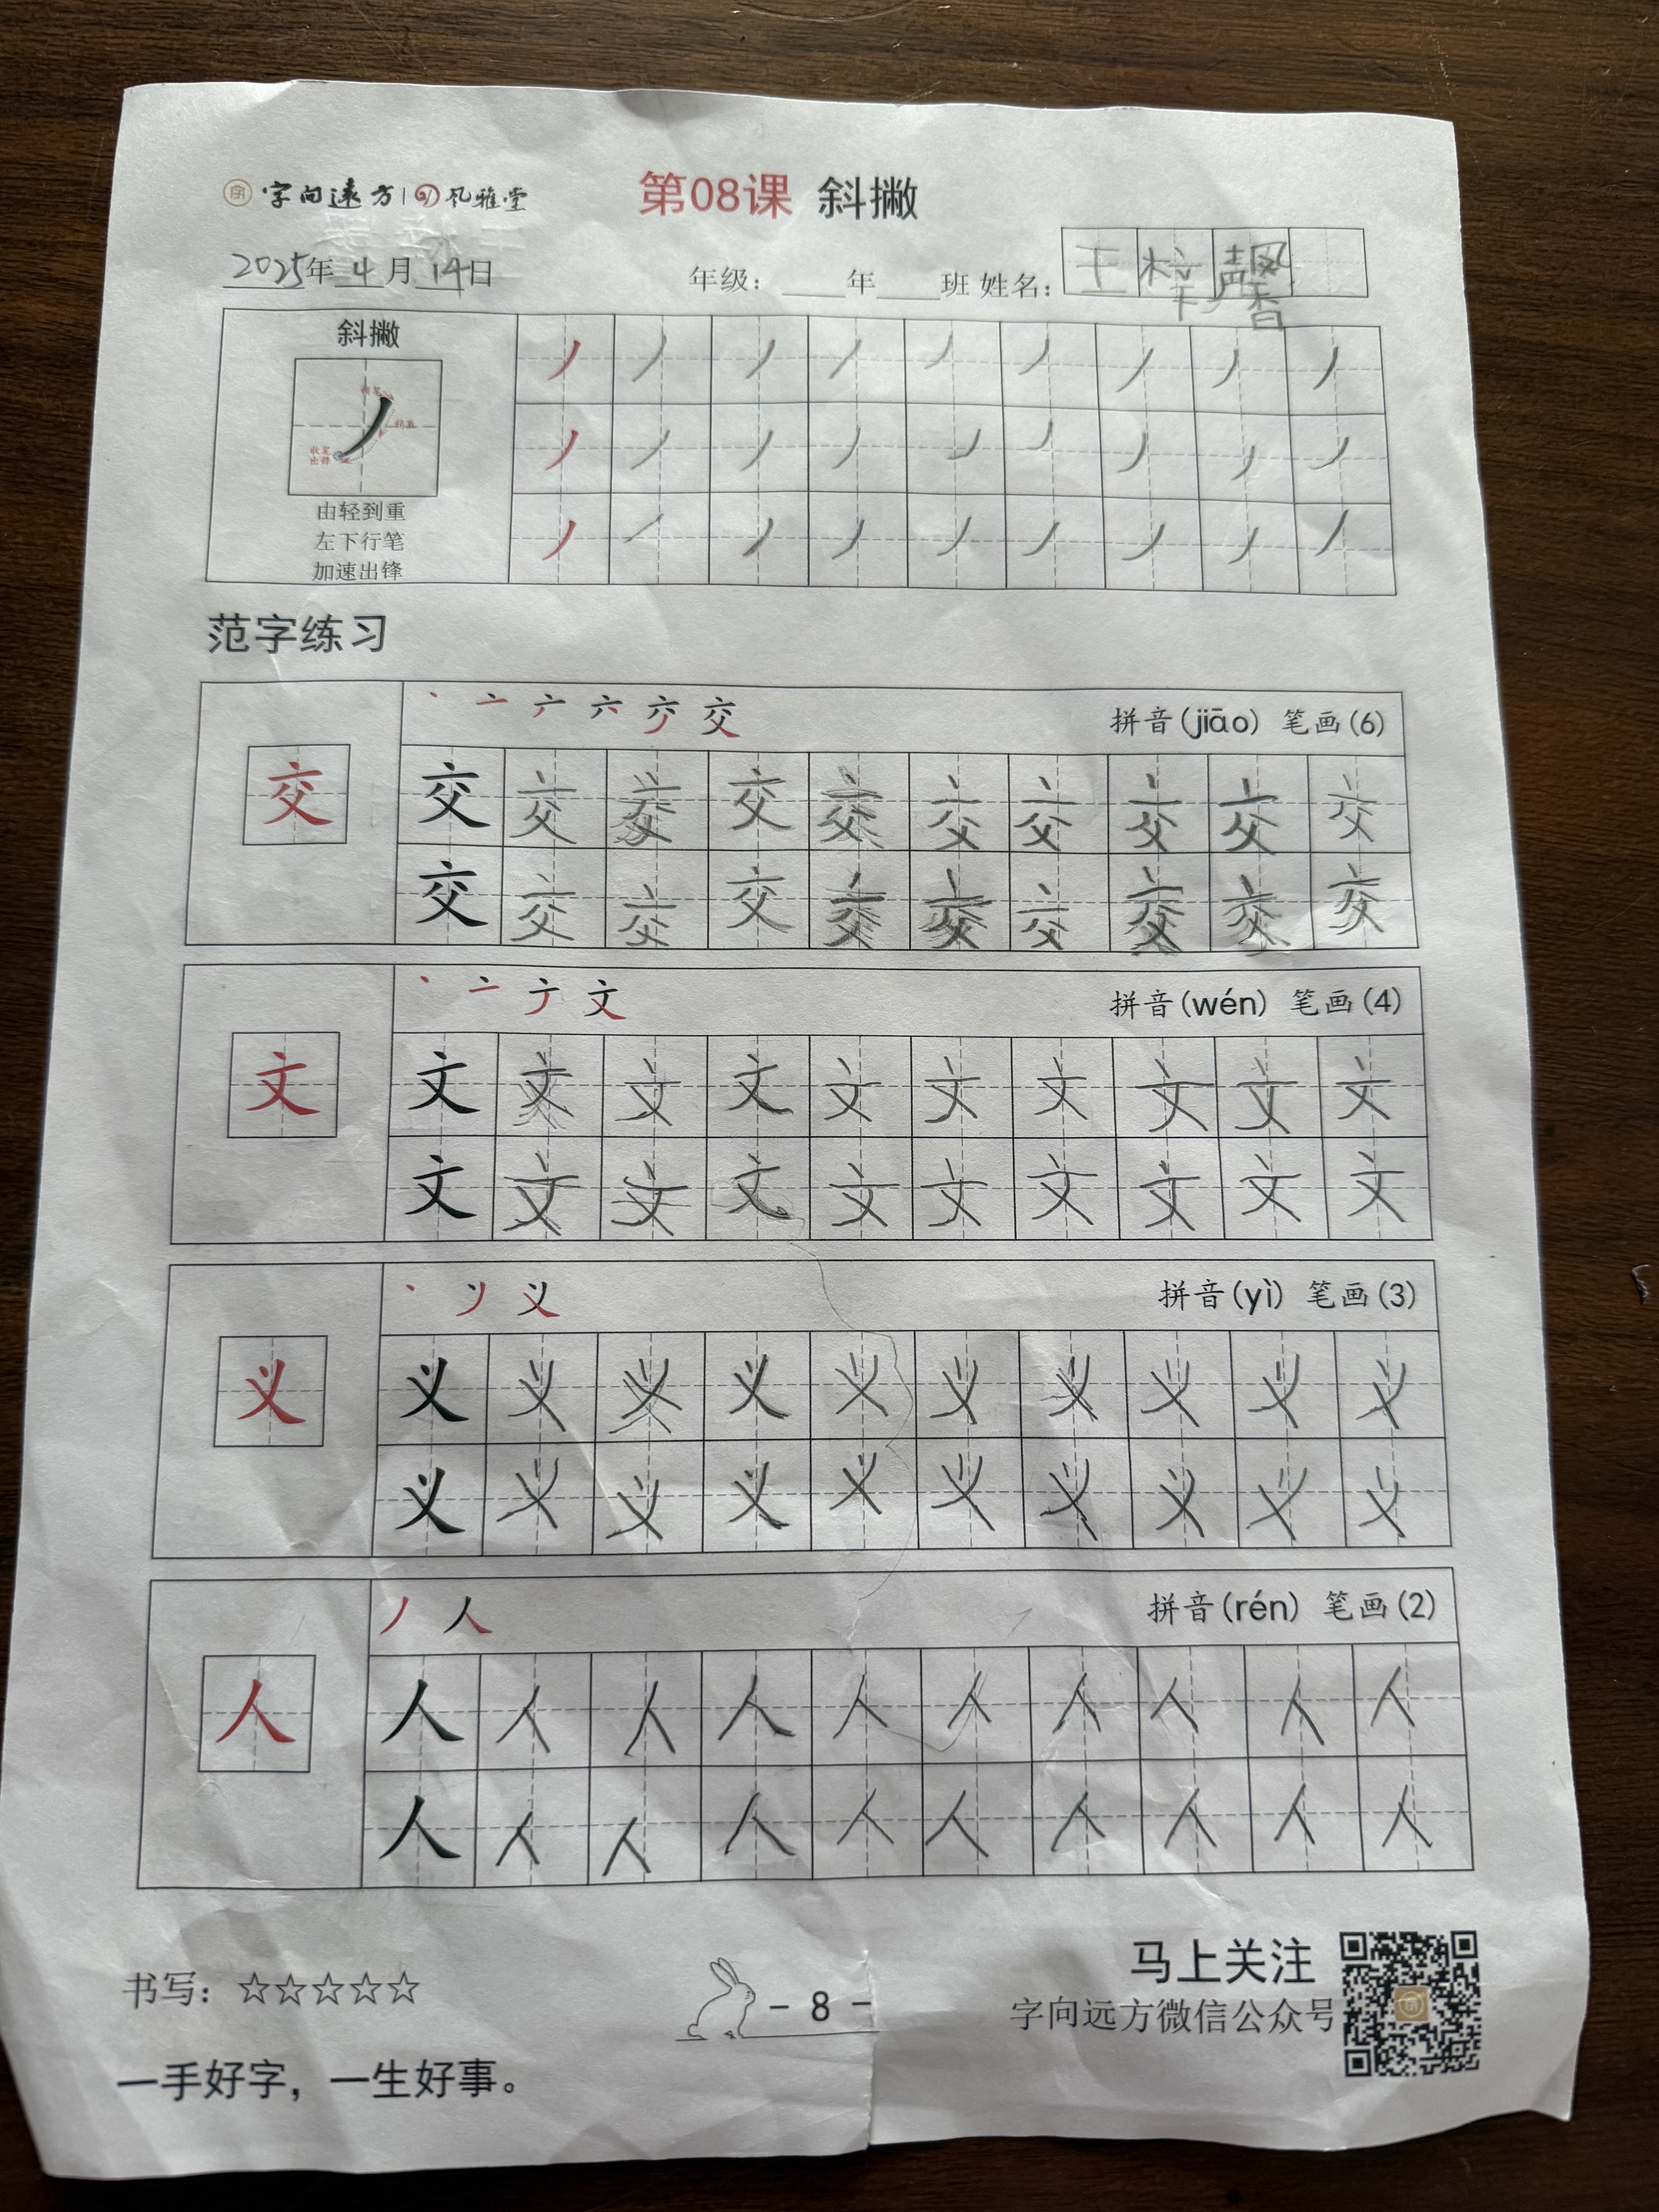 字 字向遠方 | 风雅堂
第08课 斜撇
2025年 4 月 14日 年级：____年____班 姓名：王梓馨
斜撇
收笔
出锋
由轻到重
左下行笔
加速出锋
范字练习
拼音(jiāo) 笔画(6)
交 交 交 交 交 交 交 交 交 交 交
交 交 交 交 交 交 交 交 交 交
拼音(wén) 笔画(4)
文 文 文 文 文 文 文 文 文 文 文
文 文 文 文 文 文 文 文 文 文
拼音(yì) 笔画(3)
义 义 义 义 义 义 义 义 义 义 义
义 义 义 义 义 义 义 义 义 义
拼音(rén) 笔画(2)
人 人 人 人 人 人 人 人 人 人 人
人 人 人 人 人 人 人 人 人 人
书写：☆☆☆☆☆
- 8 -
马上关注
字向远方微信公众号
一手好字，一生好事。